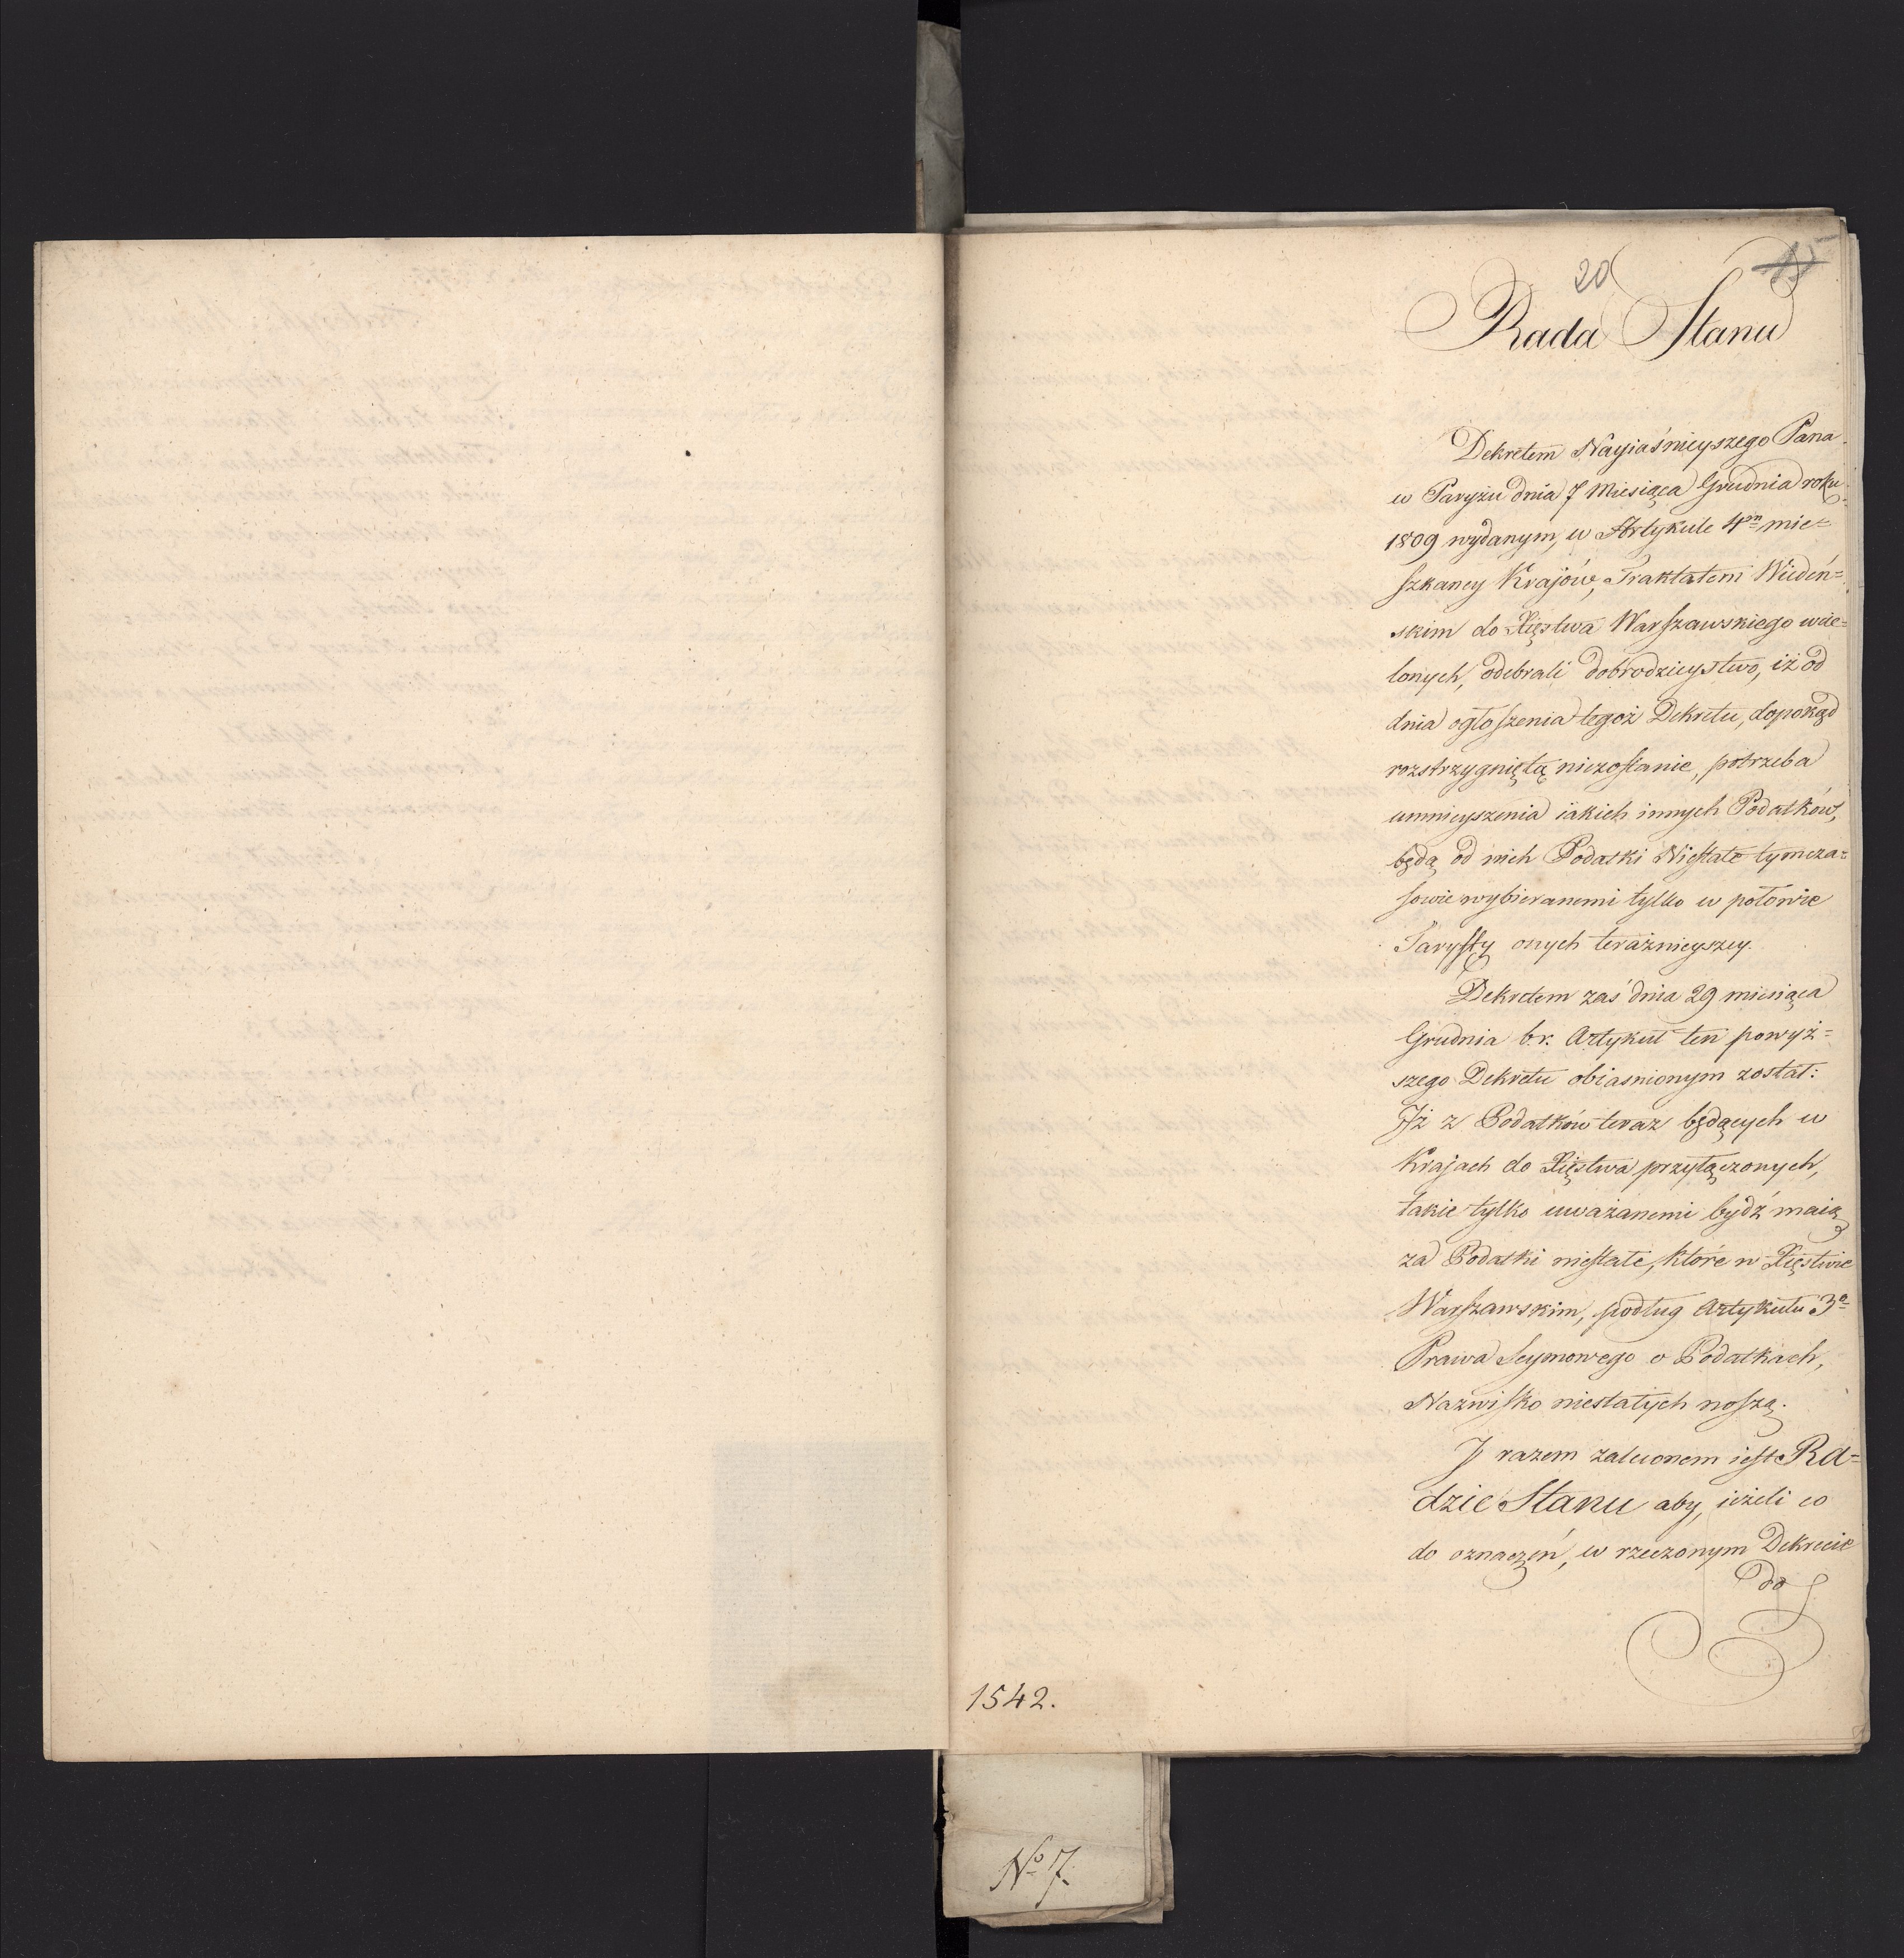 20
15
Rada Stanu
Dekretem Nayiaśnieyszego Pana
w Paryżu dnia 7 Miesiąca Grudnia roku
1809 wydanym, w Artykule 4m mie=
szkancy Krajów, Traktatem Wiedeń=
skim do Xięstwa Warszawskiego wcie=
lonych, odebrali dobrodzieystwo, iż od
dnia ogłoszenia tegoż Dekretu, dopokąd
rozstrzygniętą niezostanie, potrzeba
umnieyszenia iakich innych Podatków,
będą od nich Podatki Niestałe tymcza=
sowie wybieranemi tylko w połowie
Taryffy onych teraźnieyszey.
Dekretem zaś dnia 29 miesiąca
Grudnia b.r. Artykuł ten powyż=
szego Dekretu obiasnionym został:
Iż z Podatków teraz będących w
Krajach do Xięstwa przyłączonych,
takie tylko uważanemi bydź maią
za Podatki niestałe, które w Xięstwie
Warszawskim, podług Artykułu 3o
Prawa Seymowego o Podatkach,
Nazwisko niestałych noszą.
I razem zaleconem iest Ra=
dzie Stanu aby, ieżeli co
do oznaczeń, w rzeczonym Dekrecie
do
1542.
No 7.